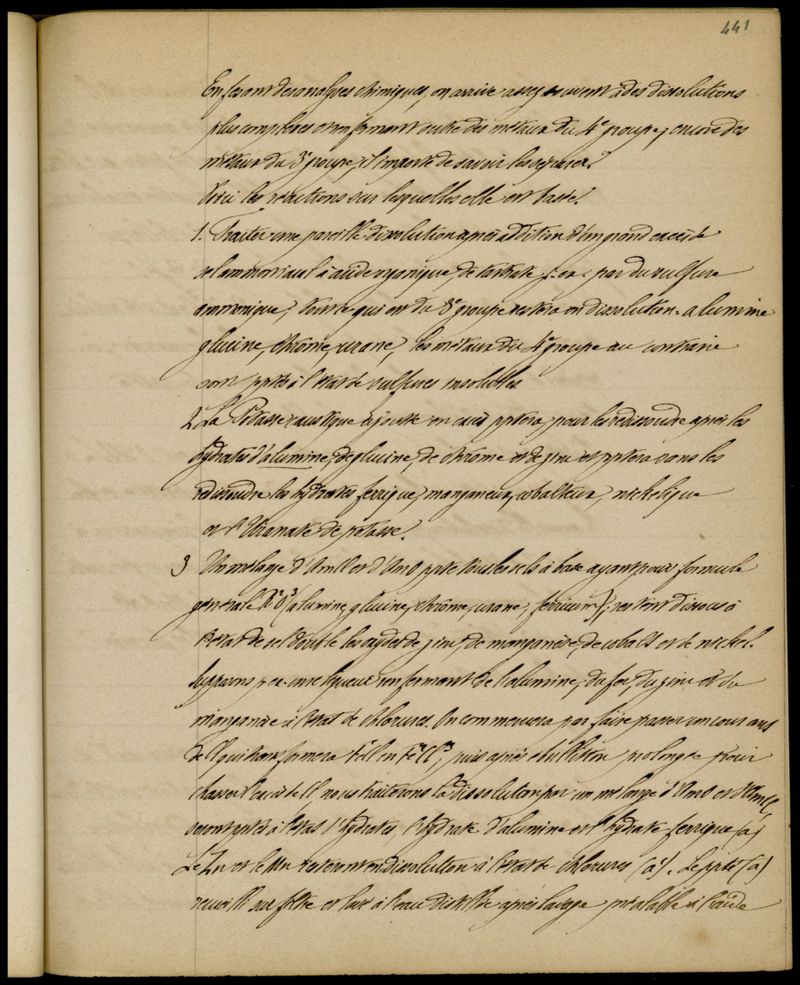 441
En faisant des analyses chimiques, on arrive assez souvent à des dissolutions
plus complexes renfermant outre des métaux du 4e groupe, encore des
métaux du 3e groupe, il importe de savoir les séparer.
Voici les réactions sur lesquelles elle est basée.
1. Traiter une pareille dissolution après addition d'un grand excès de
sel ammoniacal à acide organique, de tartrate p. ex. par du sulfure
ammonique, tout ce qui est du 3e groupe restera en dissolution. alumine
glucine, chrôme, urane, les métaux du 4e groupe au contraire
sont pptés à l'état de sulfures insolubles
2. La Potasse caustique ajoutée en excès pptera, pour les redissoudre après les
hydrates d'alumine, de glucine, de chrôme et de zinc et pptera sans les
redissoudre les hydrates ferrique, manganeux, cobalteux, nickelique
et l'Uranate de potasse.
3 Un mélange d'AmCl et d'AmO ppte tous les sels à base ayant pour formule
générale R2O3 (alumine, glucine, chrôme, urane, ferricum), resteront dissous à
l'état de sel double les oxydes de zinc, de manganèse, de cobalt et de nickel.
Supposons p. ex. une liqueur renfermant de l'alumine, du fer, du zinc et du
manganèse à l'état de chlorures. On commencera par faire passer un courant
de Cl qui transformera FeCl en Fe2Cl3, puis après ébullition prolongée pour
chasser l'excès de Cl, nous traiterons la dissolution par un mélange d'AmO et d'AmCl,
seront pptés à l'état d'hydrates, l'hydrate d'alumine et l'hydrate ferrique (a)
Le Zn et le Mn resteront en dissolution à l'état de chlorures (a'). Le ppté (a)
recueilli sur filtre et lavé à l'eau distillée après lavage préalable à l'acide